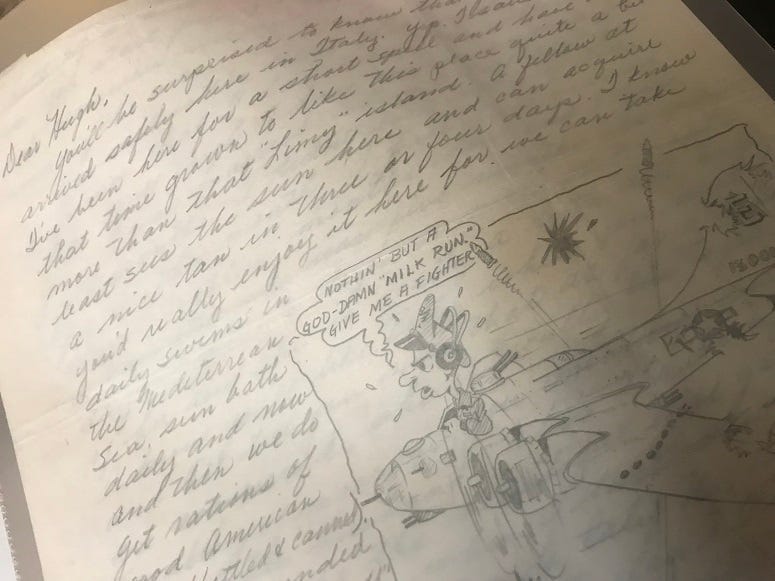 Dear Hugh,
You'll be surprised to know tha
arrived safely here in Italy. Yep. I
I've been here for a short spell and have
that time grown to like this place quite a bit
more than that "Limy" island. A fellow at
least sees the sun here and can acquire
a nice tan in three or four days. I know
you'd really enjoy it here for we can take
daily swims in
the Mediterrean
Sea, sun bath
daily and now
and then we do
get rations of
good American
(bottled & canned)
NOTHIN' BUT A
GOD-DAMN "MILK RUN."
GIVE ME A FIGHTER